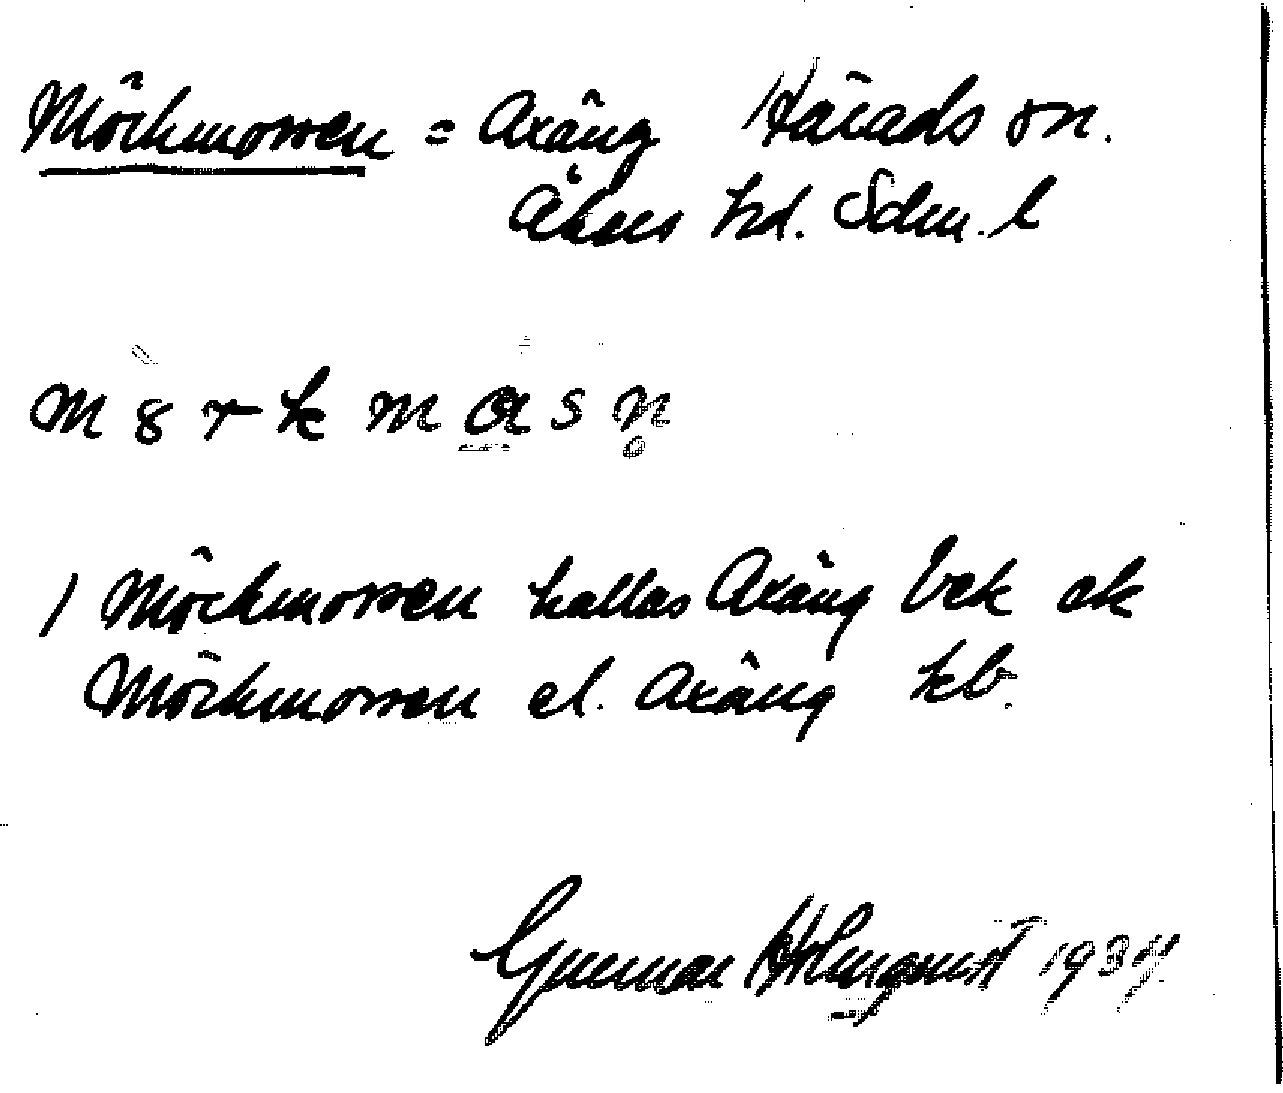 Mörkmossen = Axäng Härads sn.
Åkers hd. Sdm. l
m 8 r k m a s n
1 Mörkmossen kallas Axäng Eek ek
Mörkmossen el. Axäng kb.
Gunnar Holmquist 1934